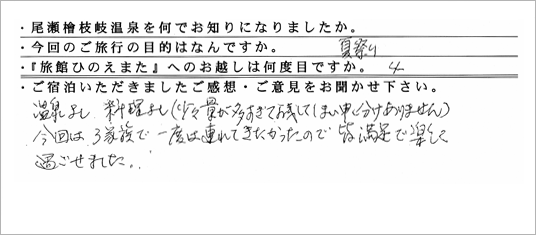 ・尾瀬檜枝岐温泉を何でお知りになりましたか。
・今回のご旅行の目的はなんですか。 夏祭り
・『旅館ひのえまた』へのお越しは何度目ですか。 4
・ご宿泊いただきましたご感想・ご意見をお聞かせ下さい。
温泉よし、料理よし（少々量が多すぎてお残ししてしまい申し分けありません）
今回は、3家族で一度は連れてきたかったので皆満足で楽しく
過ごせました。